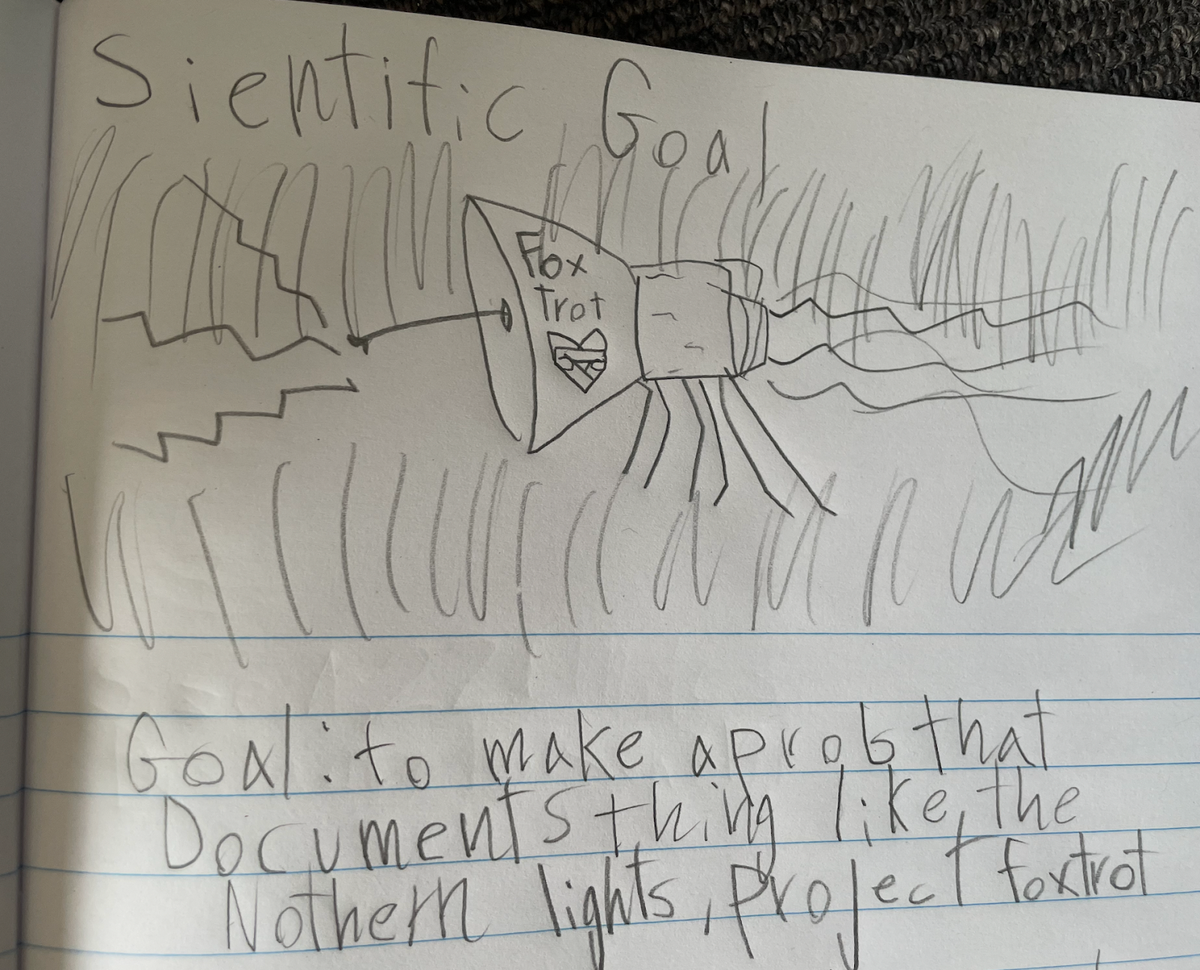 Sientific Goal
Fox
Trot
Goal: to make a prob that
Documents thing like, the
Nothern lights, project foxtrot